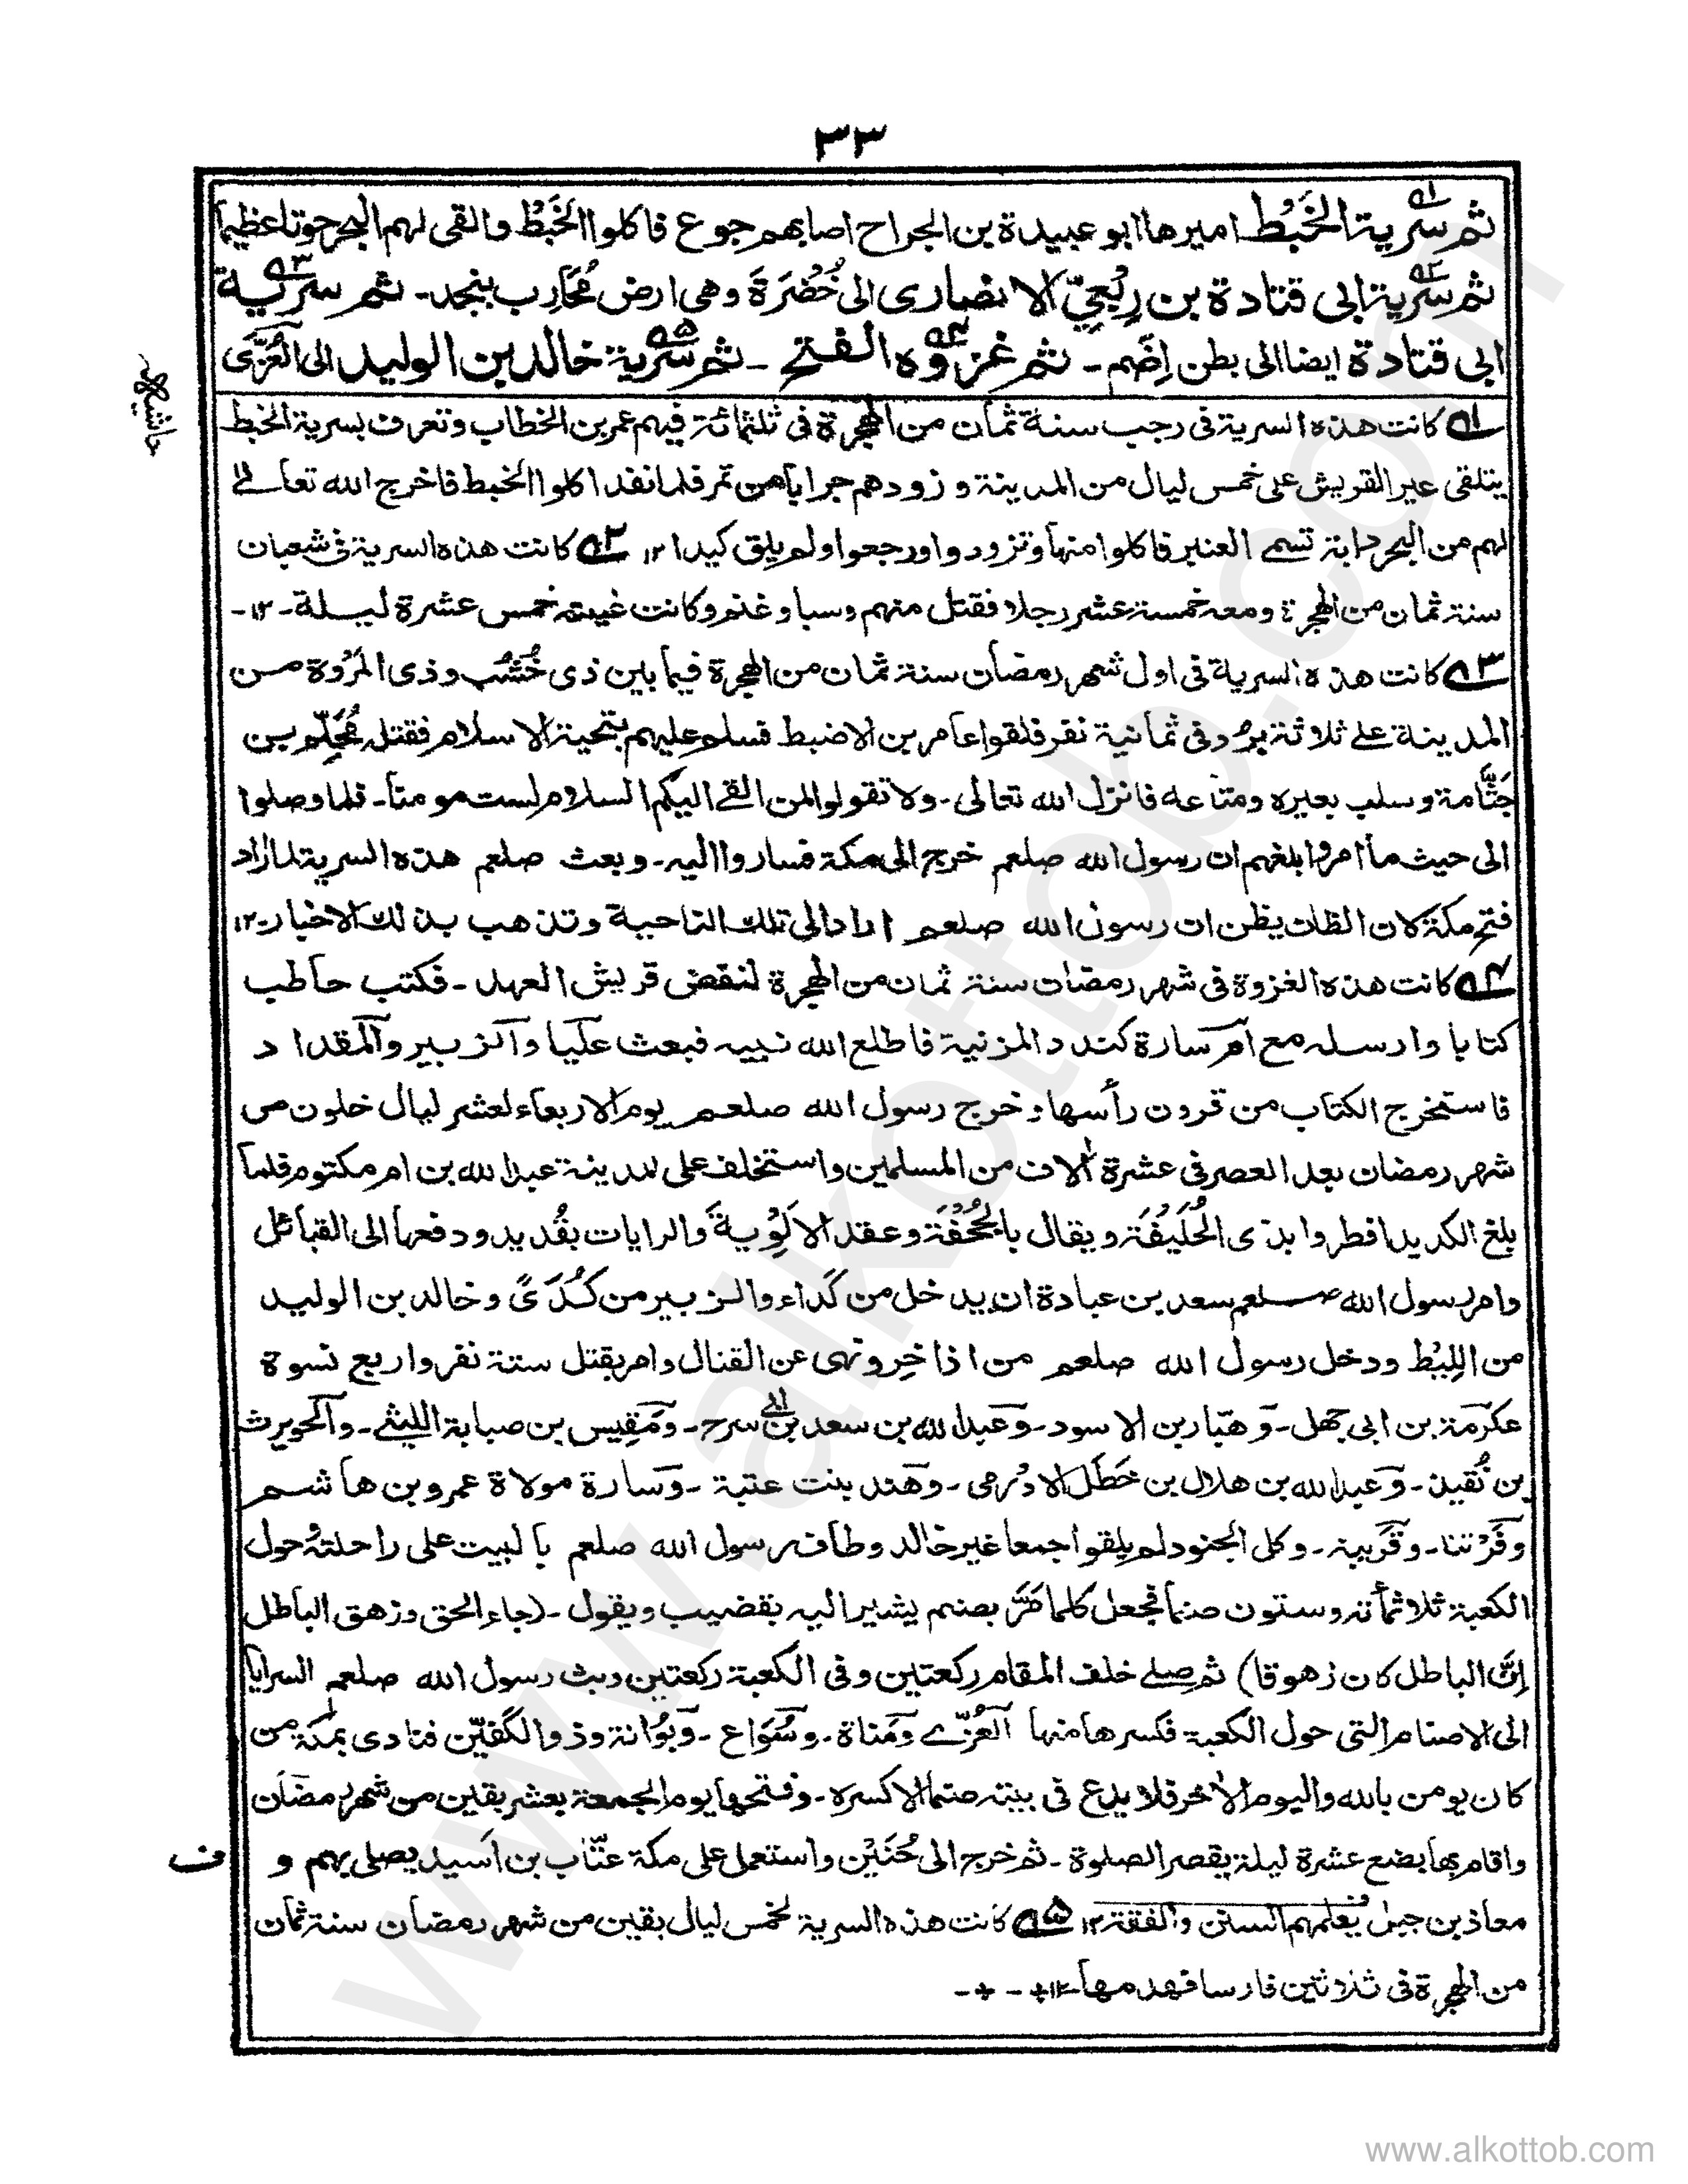 ٣٣
ثم سرية الخَبَط اميرها ابو عبيدة بن الجراح اصابهم جوع فاكلوا الخَبَطَ والقى لهم البحر حوتا عظيما
ثم سرية ابى قتادة بن رِبْعِيّ الانصارى الى خُضْرَةَ وهى ارض مُحَارِب بنجد ۔ ثم سرية
ابى قتادة ايضا الى بطن اِضَم ۔ ثم غزوه الفتح ۔ ثم سرية خالد بن الوليد الى العُزّى
حاشيه
١ كانت هذه السرية فى رجب سنة ثمان من الهجرة فى ثلثمائة فيهم عمر بن الخطاب وتعرف بسرية الخبط
يتلقى عير القريش على خمس ليال من المدينة وزودهم جرابا من تمر فلما نفد اكلوا الخبط فاخرج الله تعالى
لهم من البحر دابة تسمى العنبر فاكلوا منها وتزودوا ورجعوا ولم يلق كيدا ١٢ ٢ كانت هذه السرية فى شعبان
سنة ثمان من الهجرة ومعه خمسة عشر رجلا فقتل منهم وسبا وغنم وكانت غيبته خمس عشرة ليلة ۔ ١٢ ۔
٣ كانت هذه السرية فى اول شهر رمضان سنة ثمان من الهجرة فيما بين ذى خُشُب وذى المَرْوة من
المدينة على ثلاثة بُرُد فى ثمانية نفر فلقوا عامر بن الاضبط فسلم عليهم بتحية الاسلام فقتله مُحَلِّم بن
جَثَّامة وسلب بعيره ومتاعه فانزل الله تعالى ۔ ولا تقولوا لمن القى اليكم السلام لست مومنا ۔ فلما وصلوا
الى حيث ما أمروا بلغهم ان رسول الله صلعم خرج الى مكة فساروا اليه ۔ وبعث صلعم هذه السرية لما اراد
فتح مكة لان الظان يظن ان رسول الله صلعم اراد الى تلك الناحية وتذهب بذلك الاخبار ۔ ١٢
٤ كانت هذه الغزوة فى شهر رمضان سنة ثمان من الهجرة لنقض قريش العهد ۔ فكتب حاطب
كتابا وارسله مع ام سارة كنود المزنية فاطلع الله نبيه فبعث عليا والزبير والمقداد
فاستخرج الكتاب من قرون رأسها وخرج رسول الله صلعم يوم الاربعاء لعشر ليال خلون من
شهر رمضان بعد العصر فى عشرة الاف من المسلمين واستخلف على المدينة عبد الله بن ام مكتوم فلما
بلغ الكديد افطروا بذى الحُلَيفَة ويقال بالجُحْفَة وعقد الالْوِية والرايات بقُديد ودفعها الى القبائل
وامر رسول الله صلعم سعد بن عبادة ان يدخل من كَداء والزبير من كُدًى وخالد بن الوليد
من اللِيْط ودخل رسول الله صلعم من اذاخِر ونهى عن القتال وامر بقتل ستة نفر واربع نسوة
عكرمة بن ابى جهل ۔ وهبّار بن الاسود ۔ وعبد الله بن سعد بن ابى سرح ۔ ومَقِيس بن صبابة الليثى ۔ والحويرث
بن نُقيذ ۔ وعبد الله بن هلال بن خَطَل الادرمى ۔ وهند بنت عتبة ۔ وسارة مولاة عمرو بن هاشم
وفَرْتنا ۔ وقَريبة ۔ وكل الجنود لم يلقوا جمعا غير خالد وطاف رسول الله صلعم بالبيت على راحلته وحول
الكعبة ثلاثمائة وستون صنما فجعل كلما مَرَّ بصنم يشير اليه بقضيب ويقول ۔ (جاء الحق وزهق الباطل
اِنَّ الباطل كان زهوقا) ثم صلى خلف المقام ركعتين وفى الكعبة ركعتين وبث رسول الله صلعم السرايا
الى الاصنام التى حول الكعبة فكسرها منها العُزّى ومَناة ۔ وسُوَاع ۔ وبُوانة وذو الكَفّين فنادى بمكة من
كان يومن بالله واليوم الآخر فلا يدع فى بيته صنما الا كسره ۔ وفتحها يوم الجمعة بعشر بقين من شهر رمضان
واقام بها بضع عشرة ليلة يقصر الصلوة ۔ ثم خرج الى حُنَيْن واستعمل على مكة عتّاب بن اَسيد يصلى بهم و
ف
معاذ بن جبل يعلمهم السنن والفقة ١٢ ٥ كانت هذه السرية لخمس ليال بقين من شهر رمضان سنة ثمان
من الهجرة فى ثلاثين فارسا فهدمها ۔ ١٢ + ۔ + ۔
www.alkottob.com
www.alkottob.com